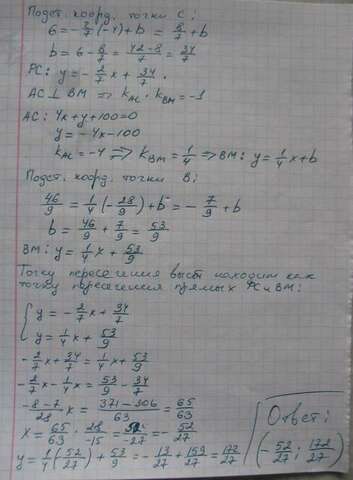 Подст. коорд. точки C:
6=-2/7(-4)+b = 8/7+b
b=6-8/7=(42-8)/7=34/7
PC: y=-2/7x+34/7.
AC⊥BM ⇒ k_AC·k_BM=-1
AC: 4x+y+100=0
y=-4x-100
k_AC=-4 ⇒ k_BM=1/4 ⇒ BM: y=1/4x+b
Подст. коорд. точки B:
46/9=1/4(-28/9)+b=-7/9+b
b=46/9+7/9=53/9
BM: y=1/4x+53/9
Точку пересечения высот находим как
точку пересечения прямых PC и BM:
{y=-2/7x+34/7
y=1/4x+53/9
-2/7x+34/7=1/4x+53/9
-2/7x-1/4x=53/9-34/7
(-8-7)/28 x=(371-306)/63=65/63
x=65/63·28/-15=52/-27=-52/27
y=1/4(52/27)+53/9=-13/27+159/27=172/27
Ответ:
(-52/27; 172/27)